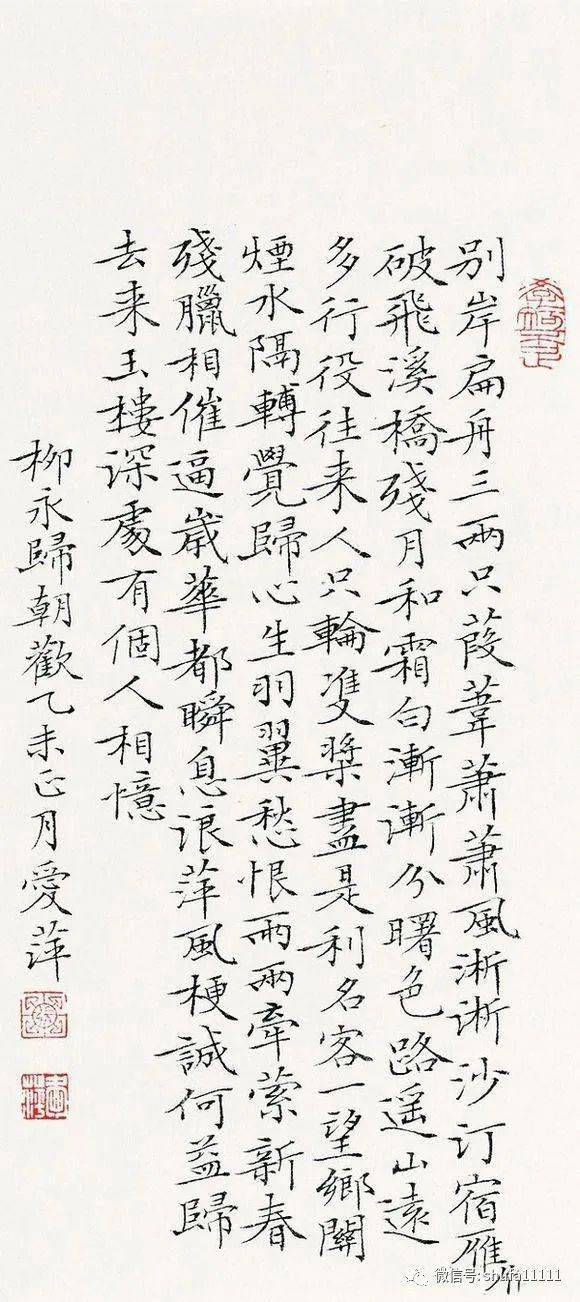 別岸扁舟三兩只葭葦蕭蕭風淅淅沙汀宿雁
破飛溪橋殘月和霜白漸漸分曙色路遥山遠
多行役往来人只輪雙槳盡是利名客一望鄉關
煙水隔轉覺歸心生羽翼愁恨雨兩牽縈新春
殘臘相催逼歲華都瞬息浪萍風梗誠何益歸
去来玉樓深處有個人相憶
柳永歸朝歡乙未正月愛萍
微信号: shufa11111